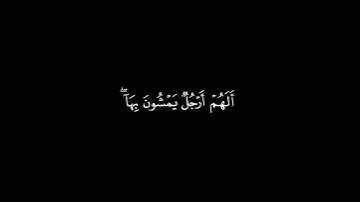 أَلَهُمۡ أَرۡجُلٞ يَمۡشُونَ بِهَآۖ